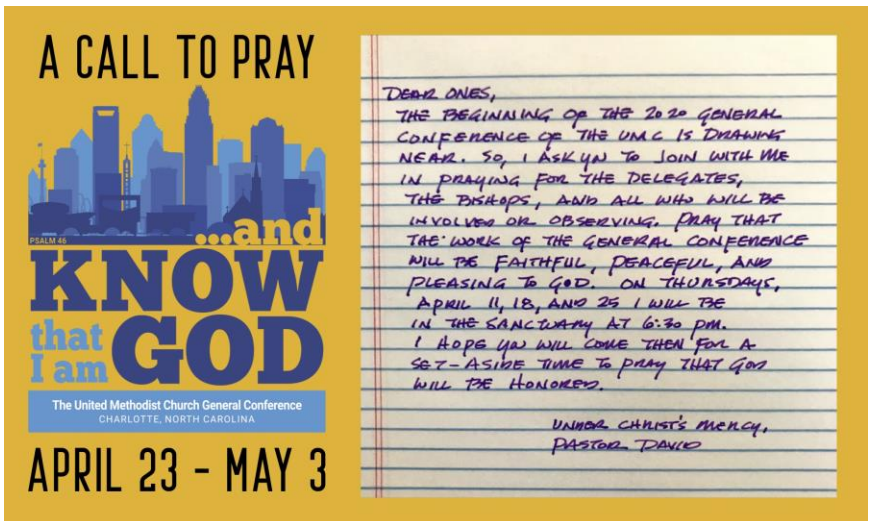 A CALL TO PRAY
PSALM 46
...and
KNOW
that
I am
GOD
The United Methodist Church General Conference
CHARLOTTE, NORTH CAROLINA
APRIL 23 - MAY 3
DEAR ONES,
THE BEGINNING OF THE 2020 GENERAL
CONFERENCE OF THE UMC IS DRAWING
NEAR. SO, I ASK YOU TO JOIN WITH ME
IN PRAYING FOR THE DELEGATES,
THE BISHOPS, AND ALL WHO WILL BE
INVOLVED OR OBSERVING. PRAY THAT
THE WORK OF THE GENERAL CONFERENCE
WILL BE FAITHFUL, PEACEFUL, AND
PLEASING TO GOD. ON THURSDAYS,
APRIL 11, 18, AND 25 I WILL BE
IN THE SANCTUARY AT 6:30 PM.
I HOPE YOU WILL COME THEN FOR A
SET-ASIDE TIME TO PRAY THAT GOD
WILL BE HONORED.
UNDER CHRIST'S MERCY,
PASTOR DAVID